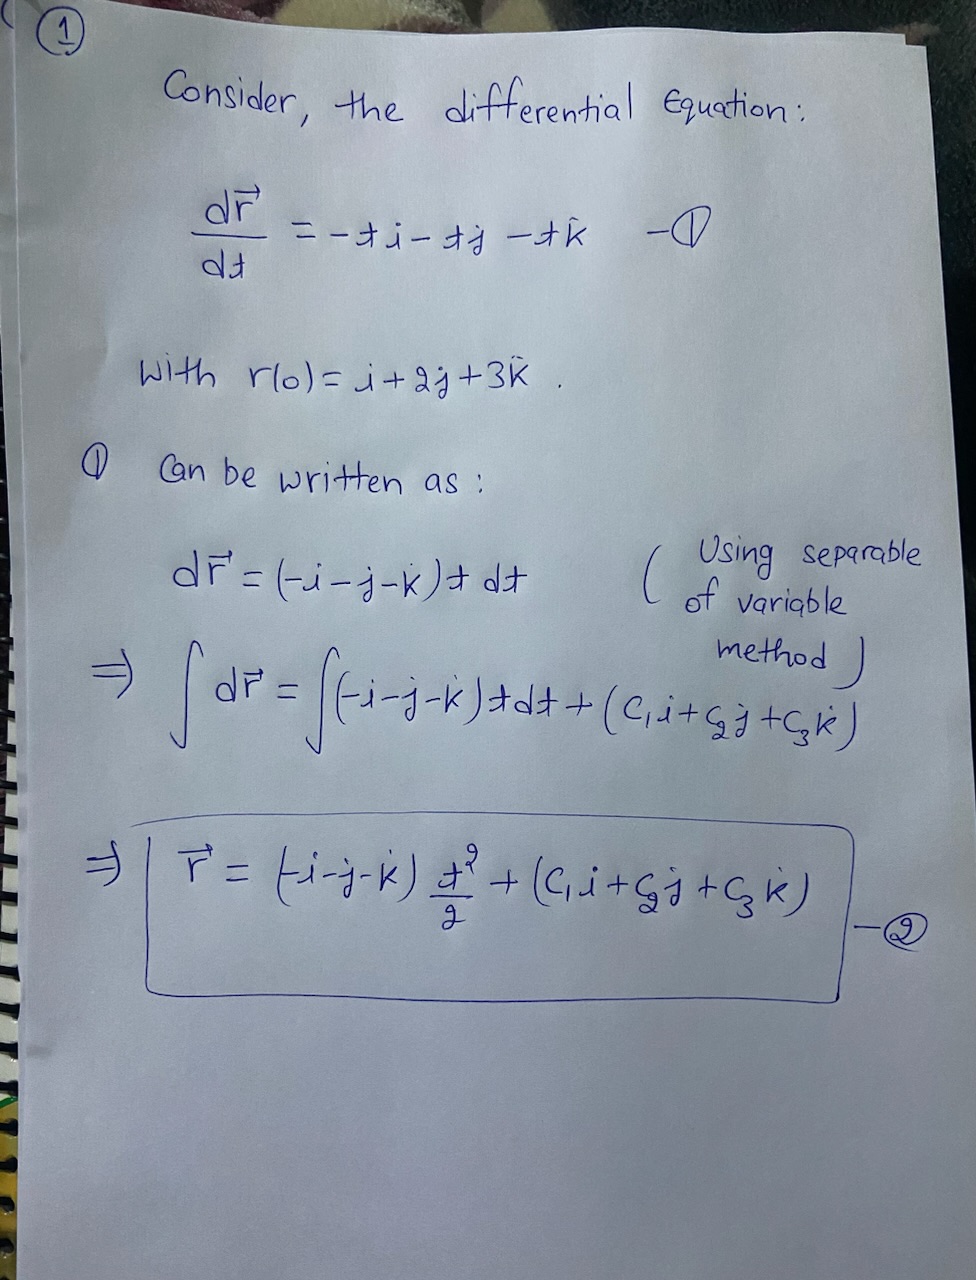 ①
Consider, the differential Equation:
dr⃗/dt = -ti - tj - tk̂ -①
With r(0) = i + 2j + 3k̂ .
① Can be written as :
dr⃗ = (-i-j-k)t dt ( Using separable
of variable
method )
⇒ ∫dr⃗ = ∫(-i-j-k)tdt + (C₁i + C₂j + C₃k)
⇒ r⃗ = (-i-j-k) t²/2 + (C₁i + C₂j + C₃k) -②